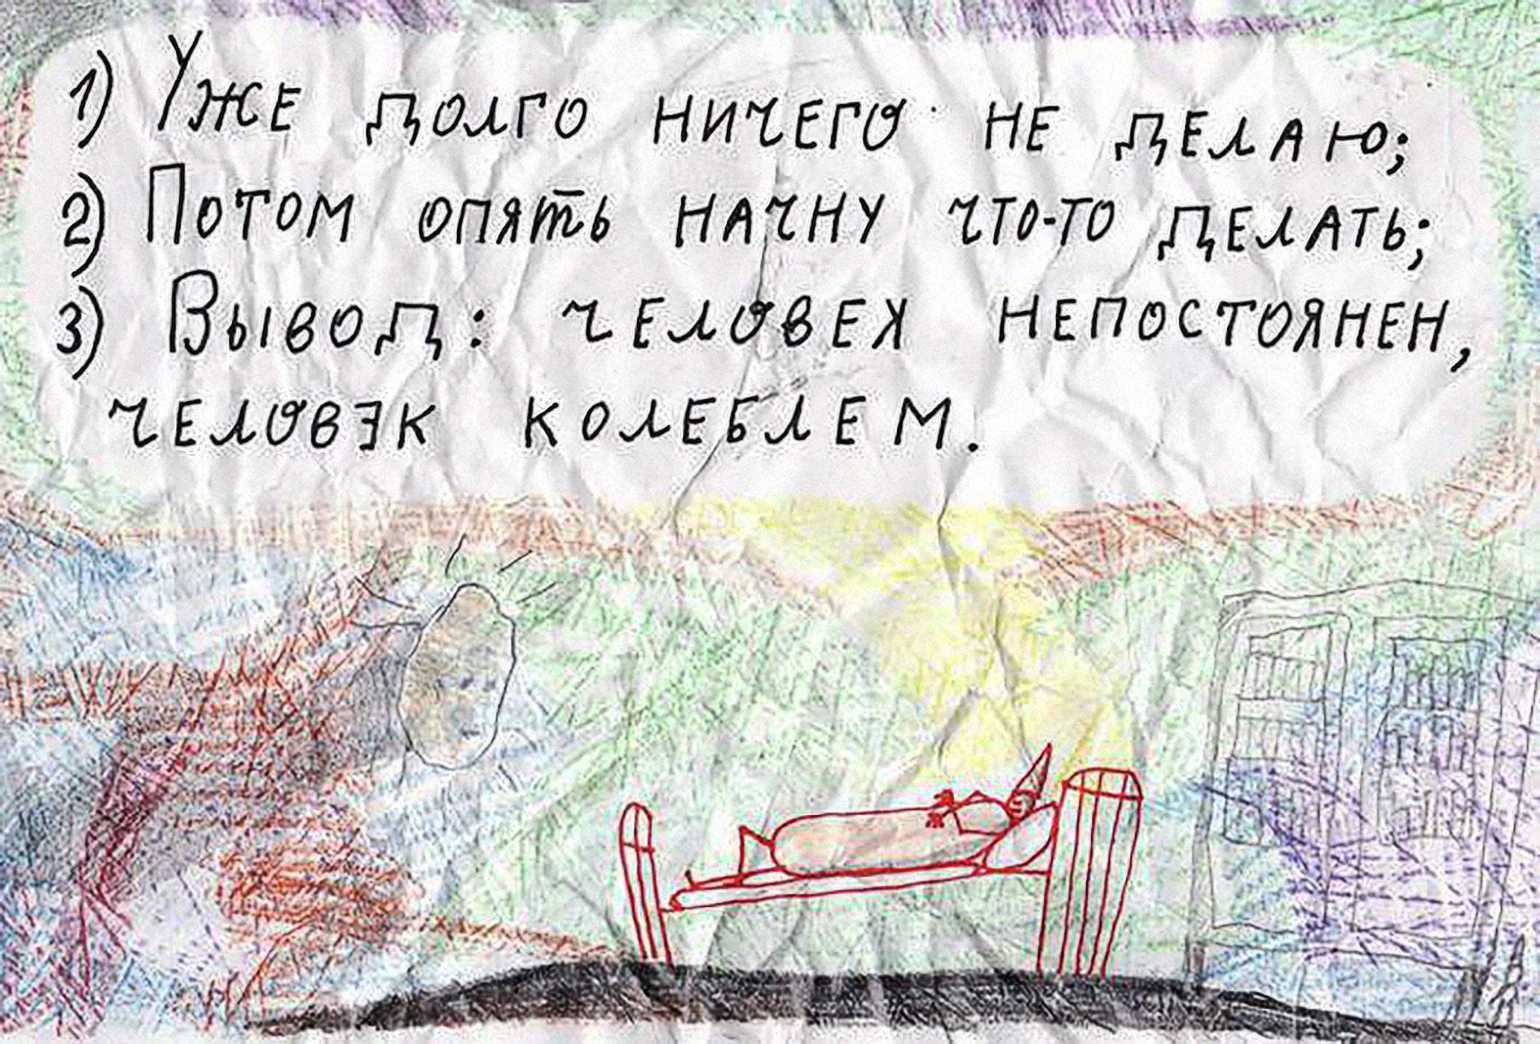 1) Уже долго ничего не делаю;
2) Потом опять начну что-то делать;
3) Вывод: человек непостоянен,
человэк колеблем.